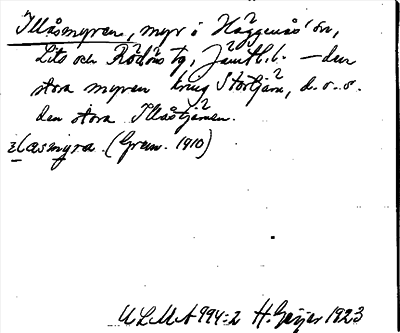 Illåsmyren, myr i Häggenås' sn,
Lits och Rödöns tg, Jämtl. l. — den
stora myren kring Stortjärn, d. v. s.
den stora Illåstjärnen.
ilasmyra. (Gren. 1910)
ULMA 994:2 H. Geijer 1923